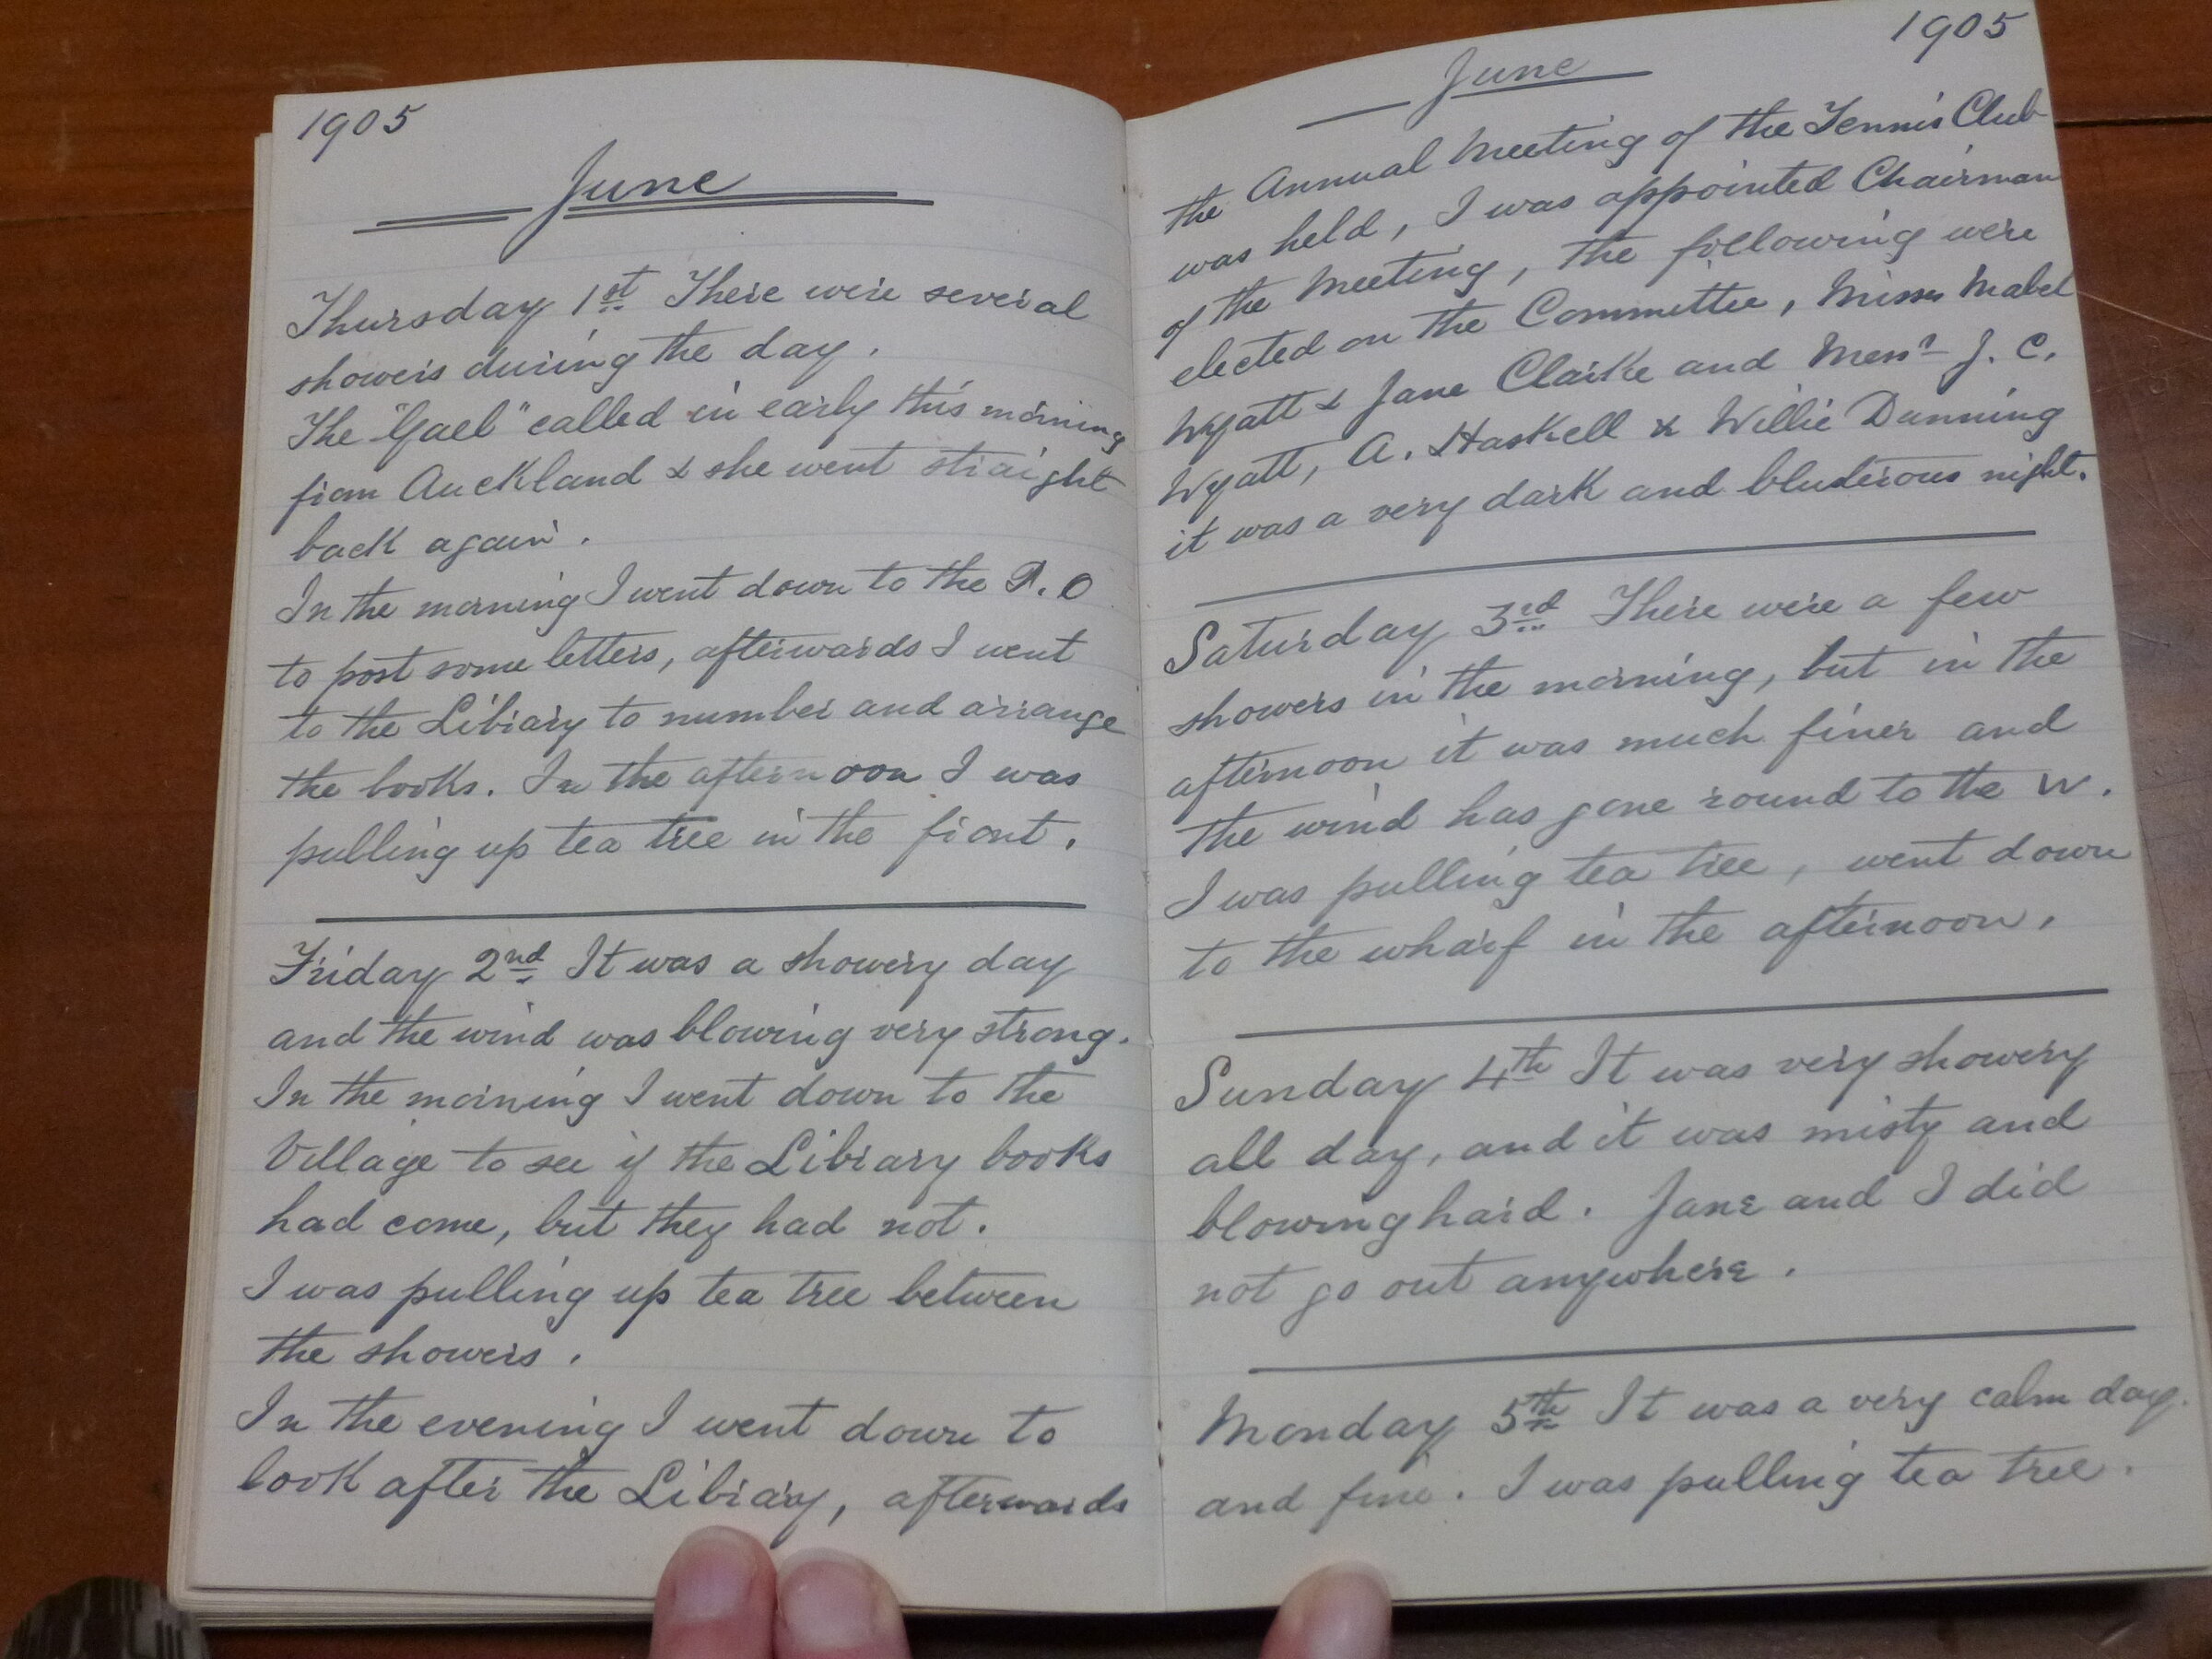 1905
June
Thursday 1st There were several
showers during the day.
The "Gael" called in early this morning
from Auckland & she went straight
back again.
In the morning I went down to the P.O
to post some letters, afterwards I went
to the Library to number and arrange
the books. In the afternoon I was
pulling up tea tree in the front.
Friday 2nd It was a showery day
and the wind was blowing very strong.
In the morning I went down to the
Village to see if the Library books
had come, but they had not.
I was pulling up tea tree between
the showers.
In the evening I went down to
look after the Library, afterwards
1905
June
the Annual Meeting of the Tennis Club
was held, I was appointed Chairman
of the Meeting, the following were
elected on the Committee, Misses Mabel
Wyatt & Jane Clarke and Messrs J. C.
Wyatt, A. Haskell & Willie Dunning
it was a very dark and blusterous night.
Saturday 3rd There were a few
showers in the morning, but in the
afternoon it was much finer and
the wind has gone round to the W.
I was pulling tea tree, went down
to the wharf in the afternoon.
Sunday 4th It was very showery
all day, and it was misty and
blowing hard. Jane and I did
not go out anywhere.
Monday 5th It was a very calm day.
and fine. I was pulling tea tree.